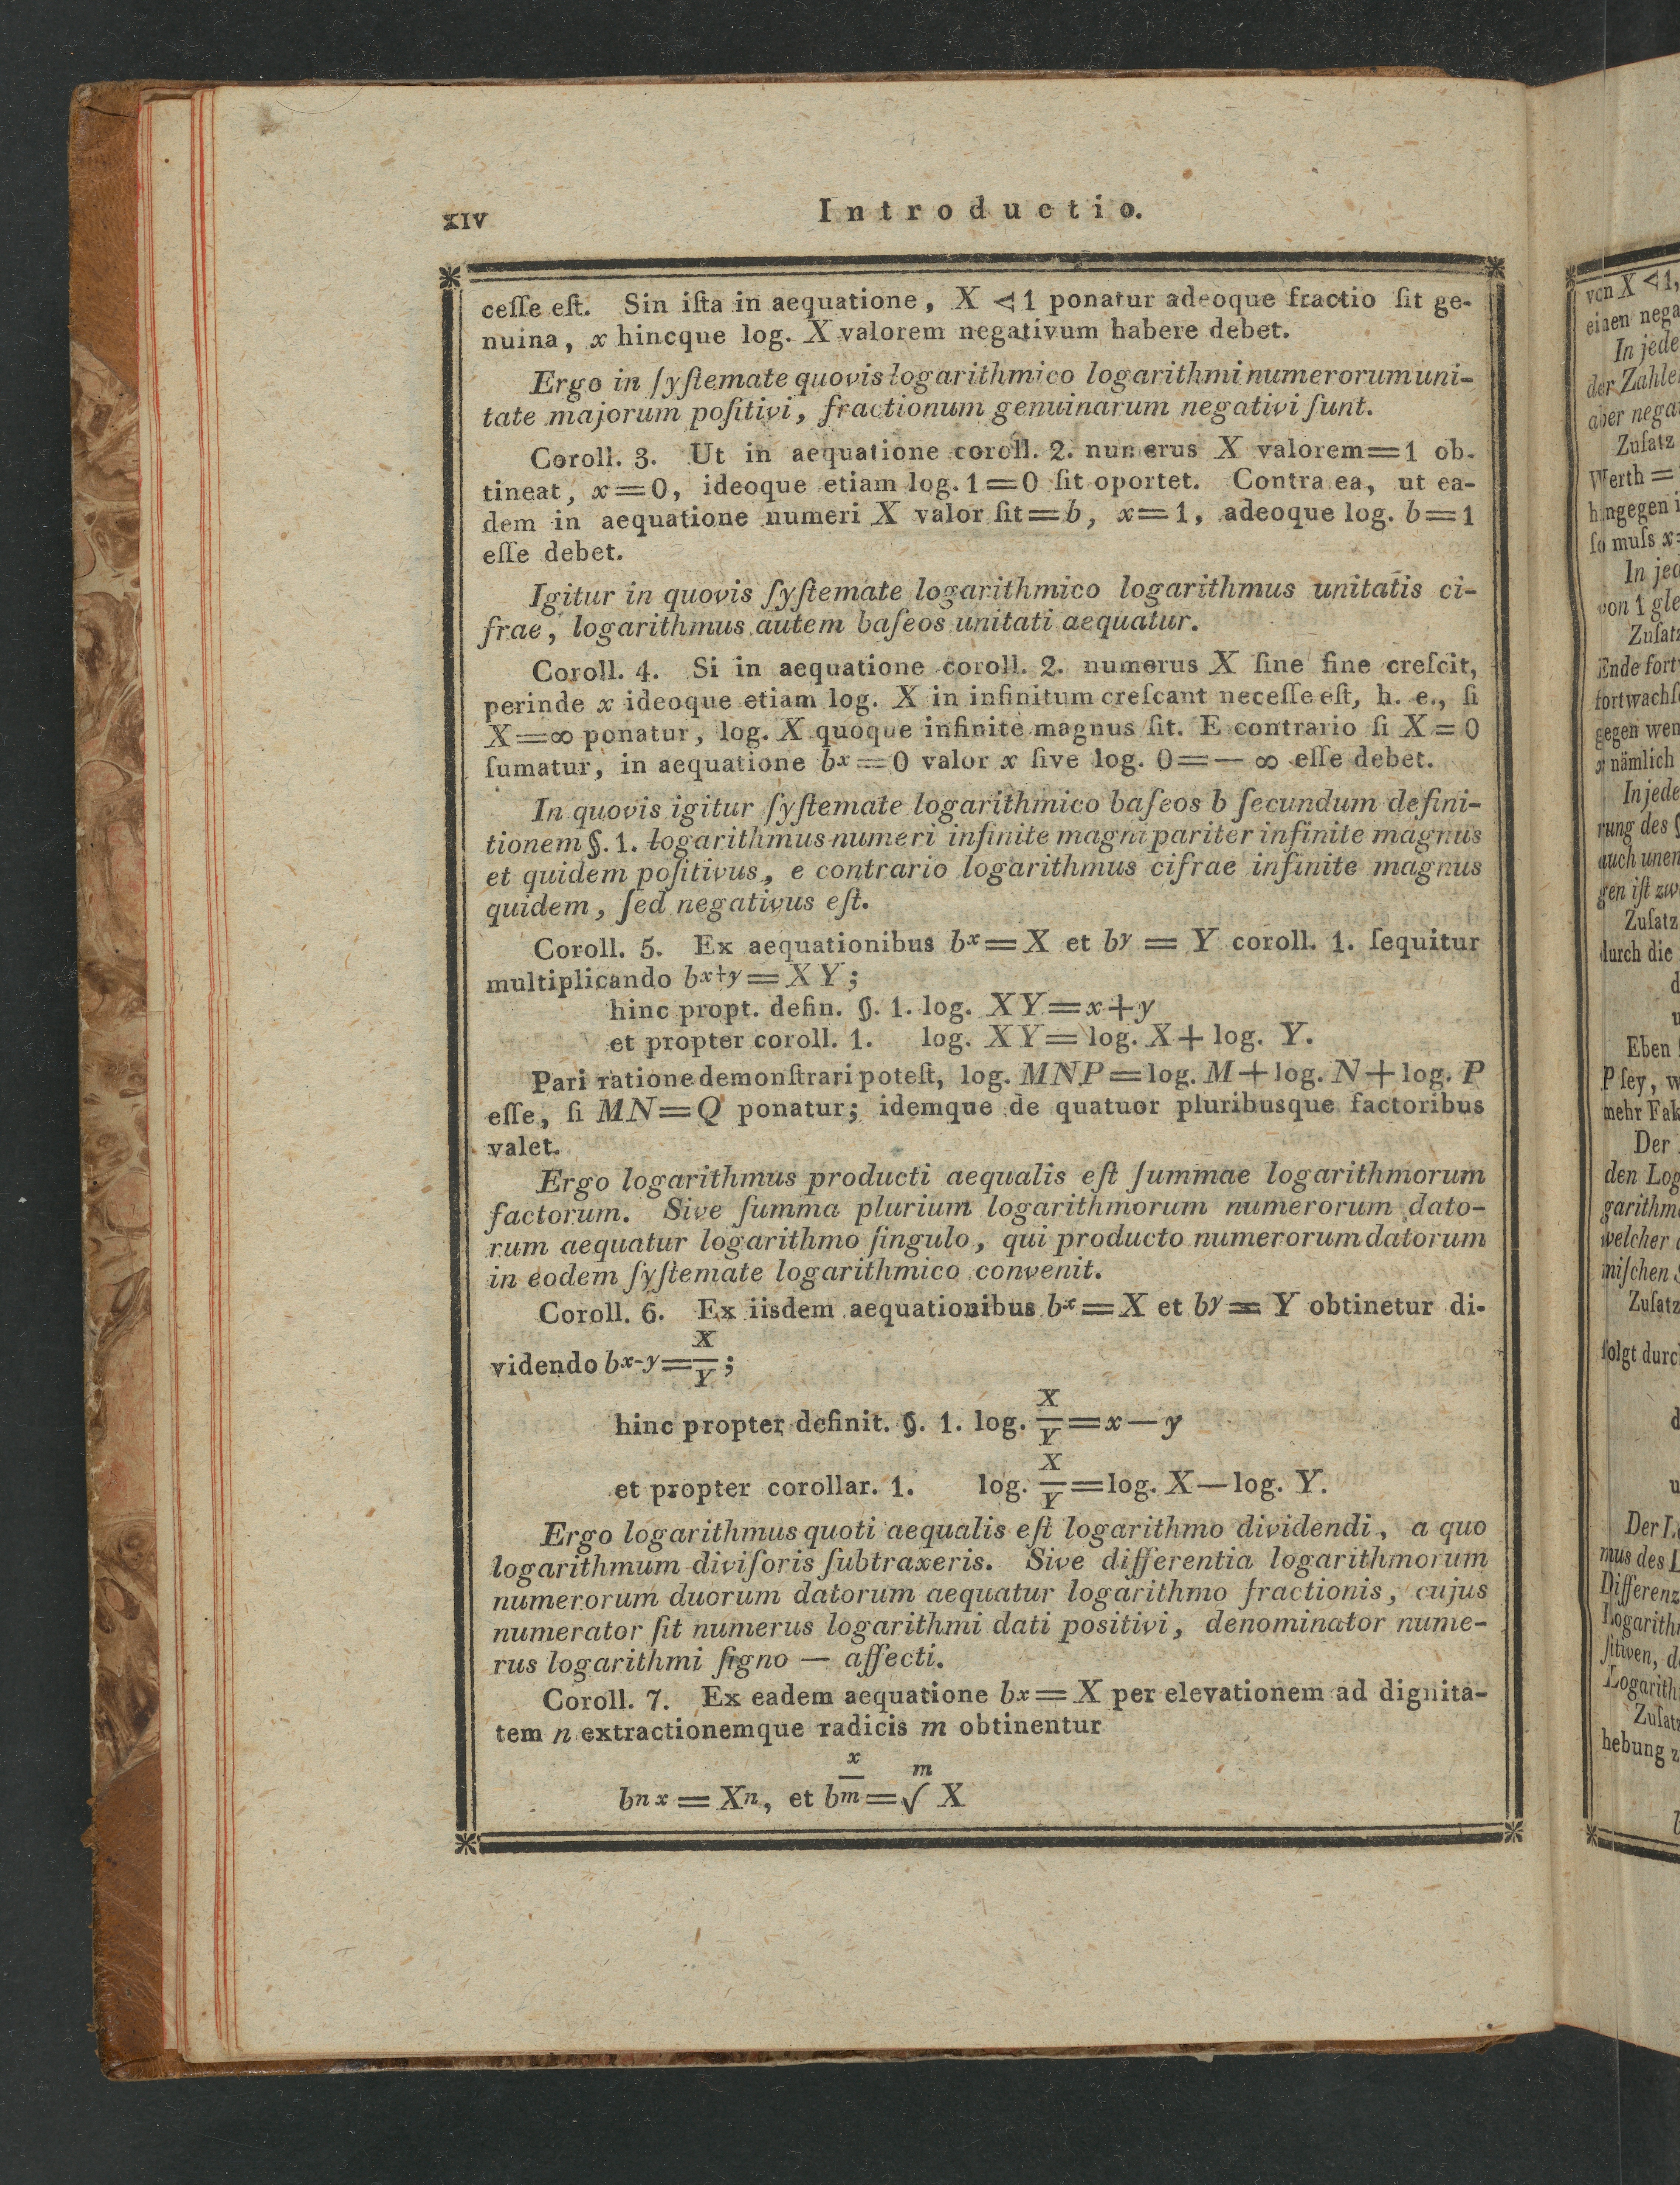 XIV
Introductio.
ceſſe eſt. Sin iſta in aequatione, X < 1 ponatur adeoque fractio ſit ge-
nuina, x hincque log. X valorem negativum habere debet.
Ergo in ſyſtemate quovis logarithmico logarithmi numerorum uni-
tate majorum poſitivi, fractionum genuinarum negativi ſunt.
Coroll. 3. Ut in aequatione coroll. 2. numerus X valorem=1 ob-
tineat, x=0, ideoque etiam log. 1=0 ſit oportet. Contra ea, ut ea-
dem in aequatione numeri X valor ſit=b, x=1, adeoque log. b=1
eſſe debet.
Igitur in quovis ſyſtemate logarithmico logarithmus unitatis ci-
frae, logarithmus autem baſeos unitati aequatur.
Coroll. 4. Si in aequatione coroll. 2. numerus X ſine fine creſcit,
perinde x ideoque etiam log. X in infinitum creſcant neceſſe eſt, h. e., ſi
X=∞ ponatur, log. X quoque infinite magnus ſit. E contrario ſi X=0
ſumatur, in aequatione bˣ=0 valor x ſive log. 0=— ∞ eſſe debet.
In quovis igitur ſyſtemate logarithmico baſeos b ſecundum defini-
tionem §. 1. logarithmus numeri infinite magni pariter infinite magnus
et quidem poſitivus, e contrario logarithmus cifrae infinite magnus
quidem, ſed negativus eſt.
Coroll. 5. Ex aequationibus bˣ=X et bʸ = Y coroll. 1. ſequitur
multiplicando bˣ⁺ʸ=XY;
hinc propt. defin. §. 1. log. XY=x+y
et propter coroll. 1. log. XY=log. X+log. Y.
Pari ratione demonſtrari poteſt, log. MNP=log. M+log. N+log. P
eſſe, ſi MN=Q ponatur; idemque de quatuor pluribusque factoribus
valet.
Ergo logarithmus producti aequalis eſt ſummae logarithmorum
factorum. Sive ſumma plurium logarithmorum numerorum dato-
rum aequatur logarithmo ſingulo, qui producto numerorum datorum
in eodem ſyſtemate logarithmico convenit.
Coroll. 6. Ex iisdem aequationibus bˣ=X et bʸ= Y obtinetur di-
videndo bˣ⁻ʸ=X/Y;
hinc propter definit. §. 1. log. X/Y=x—y
et propter corollar. 1. log. X/Y=log. X—log. Y.
Ergo logarithmus quoti aequalis eſt logarithmo dividendi, a quo
logarithmum diviſoris ſubtraxeris. Sive differentia logarithmorum
numerorum duorum datorum aequatur logarithmo fractionis, cujus
numerator ſit numerus logarithmi dati positivi, denominator nume-
rus logarithmi ſigno — affecti.
Coroll. 7. Ex eadem aequatione bˣ=X per elevationem ad dignita-
tem n extractionemque radicis m obtinentur
bⁿˣ=Xⁿ, et b^(x/m)=ᵐ√ X
von X < 1,
In jede
Zuſatz
Werth =
ſo muſs x=
Zuſatz
gegen wen
nämlich
rung des §
Zuſatz
durch die
Eben
P ſey, w
mehr Fak
Der
den Log
welcher
miſchen
folgt durc
mus des
Differenz
hebung z